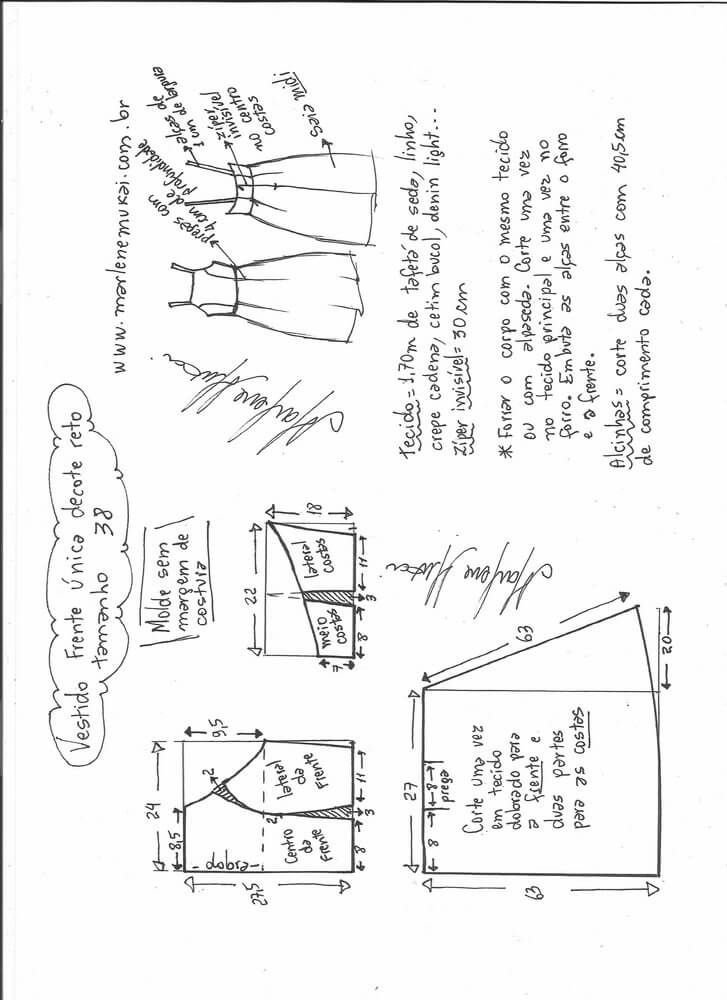 Vestido frente única decote reto
tamanho 38
www.marlenemukai.com.br
Molde sem
margem de
costura
pregas com
4 cm de
profundidade
alças de
1 cm de largura
zíper
invisível
no centro
costas
Saia midi
Marlene Mukai
24
8,5
9,5
27,5
dobra
2
2
Centro
da
Frente
lateral
da
Frente
8
3
11
22
18
7
meio
costas
lateral
costas
8
3
11
Tecido = 1,70m de tafetá de seda, linho,
crepe cadena, cetim bucol, denin light...
Zíper invisível = 30 cm
* Forrar o corpo com o mesmo tecido
ou com alpaseda. Corte uma vez
no tecido principal e uma vez no
forro. Embuta as alças entre o forro
e a frente.
Alcinhas = corte duas alças com 40,5 cm
de comprimento cada.
Marlene Mukai
27
8
8
prega
63
63
20
Corte uma vez
em tecido
dobrado para
a frente e
duas partes
para as costas